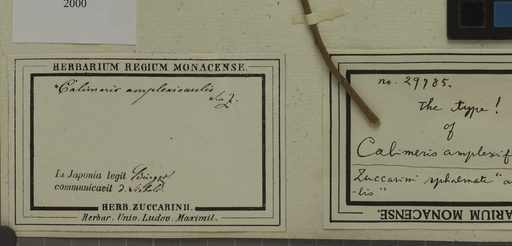 2000
HERBARIUM REGIUM MONACENSE.
Calimeris amplexicaulis
S. Z.
In Japonia legit Bürger
communicavit d. Siebold
HERB. ZUCCARINII.
Herbar. Univ. Ludov. Maximil.
no. 29985.
The type!
of
Calimeris amplexif
Zuccarini sphalmate "a
-lis"
ARIUM MONACENSE.